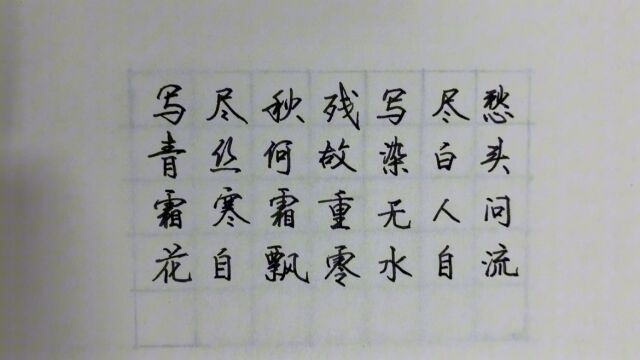 写尽秋残写尽愁
青丝何故染白头
霜寒霜重无人问
花自飘零水自流